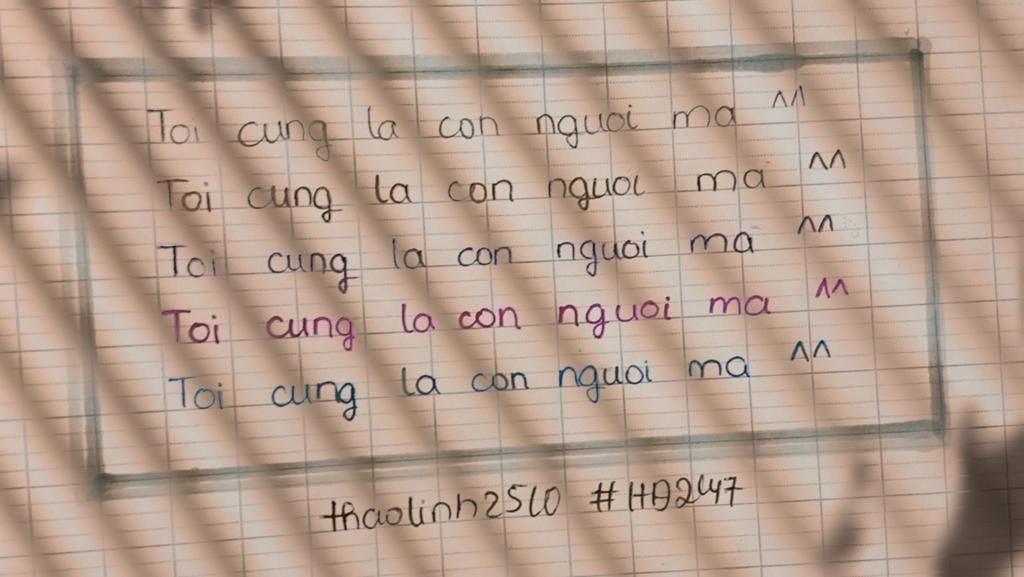 Toi cung la con nguoi ma ^^
Toi cung la con nguoi ma ^^
Toi cung la con nguoi ma ^^
Toi cung la con nguoi ma ^^
Toi cung la con nguoi ma ^^
thaolinh2510